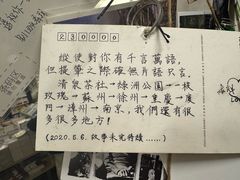 230000
縱使對你有千言萬語，
但提筆之際確無片語只言。
清氣茶社→綠洲公園→一枝
玫瑰→蘇州→徐州→重慶→廈
門→漳州→南京，我們還有很
多很多地方！
(2020.5.6. 故事未完待續......)